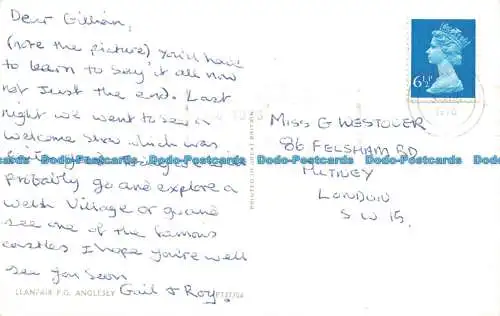 Dear Gillian,
(note the picture) you'll have
to learn to say it all now
not just the end. Last
night we went to see a
welcome show which was
probably go and explore a
Welsh Village or go and
see one of the famous
castles I hope you're well
see you soon
Gail & Roy.
LLANFAIR P.G. ANGLESEY PT27704
PRINTED IN GREAT BRITAIN
6½P
MISS G WESTOVER
86 FELSHAM RD
PUTNEY
LONDON
S W 15.
Dodo-Postcards Dodo-Postcards Dodo-Postcards Dodo-Postcards Dodo-Postcards